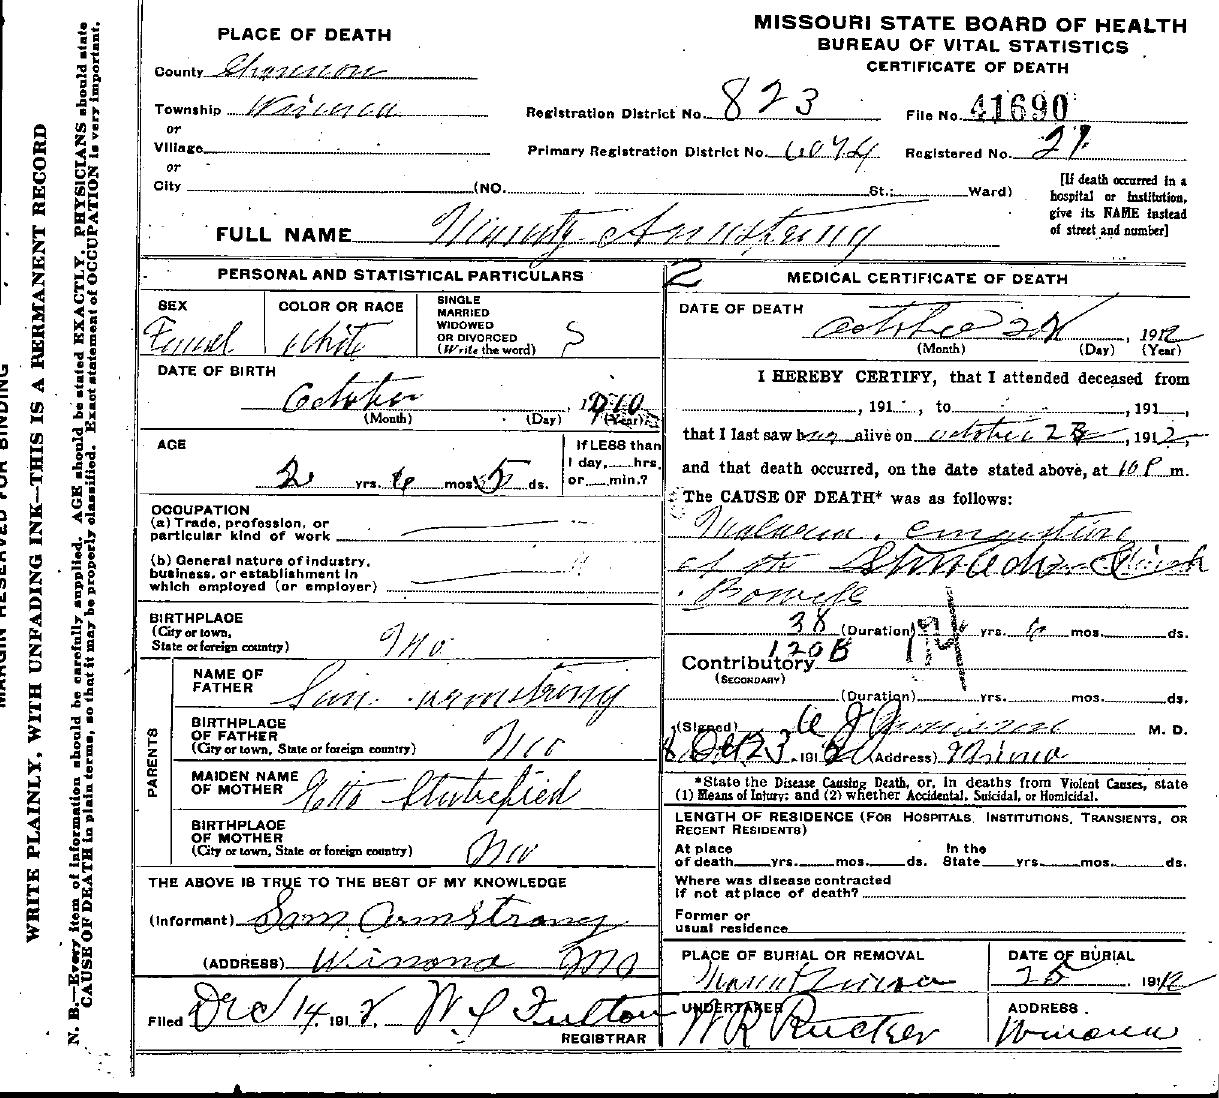 MISSOURI STATE BOARD OF HEALTH
BUREAU OF VITAL STATISTICS
CERTIFICATE OF DEATH
PLACE OF DEATH
County Shannon
Township Winona
or
Village
or
City (NO. St.; Ward)
Registration District No. 823
File No. 41690
Primary Registration District No. 6074
Registered No. 21
[If death occurred in a
hospital or institution,
give its NAME instead
of street and number]
FULL NAME Armstrong
PERSONAL AND STATISTICAL PARTICULARS
SEX
Femal
COLOR OR RACE
White
SINGLE
MARRIED
WIDOWED
OR DIVORCED
(Write the word)
S
DATE OF BIRTH
October 1910
(Month) (Day) (Year)
AGE
2 yrs. mos. 5 ds.
If LESS than
1 day, hrs.
or min.?
OCCUPATION
(a) Trade, profession, or
particular kind of work
(b) General nature of industry,
business, or establishment in
which employed (or employer)
BIRTHPLACE
(City or town,
State or foreign country)
Mo
PARENTS
NAME OF
FATHER
Sam Armstrong
BIRTHPLACE
OF FATHER
(City or town, State or foreign country)
Mo
MAIDEN NAME
OF MOTHER
Stubefied
BIRTHPLACE
OF MOTHER
(City or town, State or foreign country)
Mo
THE ABOVE IS TRUE TO THE BEST OF MY KNOWLEDGE
(Informant) Sam Armstrong
(ADDRESS) Winona Mo
Filed Dec 14. 1912, W Fulton
REGISTRAR
2
MEDICAL CERTIFICATE OF DEATH
DATE OF DEATH
October , 1912
(Month) (Day) (Year)
I HEREBY CERTIFY, that I attended deceased from
, 191 , to , 191 ,
that I last saw her alive on october 23, 1912,
and that death occurred, on the date stated above, at 10 P m.
The CAUSE OF DEATH* was as follows:
Malaria. congestion
of the Stomach
Bowels
38 (Duration) yrs. 6 mos. ds.
120B
Contributory
(SECONDARY)
(Duration) yrs. mos. ds.
(Signed) M. D.
Oct 23, 1912 (Address) Winona
*State the Disease Causing Death, or, in deaths from Violent Causes, state
(1) Means of Injury; and (2) whether Accidental, Suicidal, or Homicidal.
LENGTH OF RESIDENCE (FOR HOSPITALS, INSTITUTIONS, TRANSIENTS, OR
RECENT RESIDENTS)
At place
of death yrs. mos. ds.
In the
State yrs. mos. ds.
Where was disease contracted
if not at place of death?
Former or
usual residence
PLACE OF BURIAL OR REMOVAL
DATE OF BURIAL
25 1912
UNDERTAKER
W R Rucker
ADDRESS
Winona
MARGIN RESERVED FOR BINDING
WRITE PLAINLY, WITH UNFADING INK—THIS IS A PERMANENT RECORD
N. B.—Every item of information should be carefully supplied. AGE should be stated EXACTLY. PHYSICIANS should state
CAUSE OF DEATH in plain terms, so that it may be properly classified. Exact statement of OCCUPATION is very important.